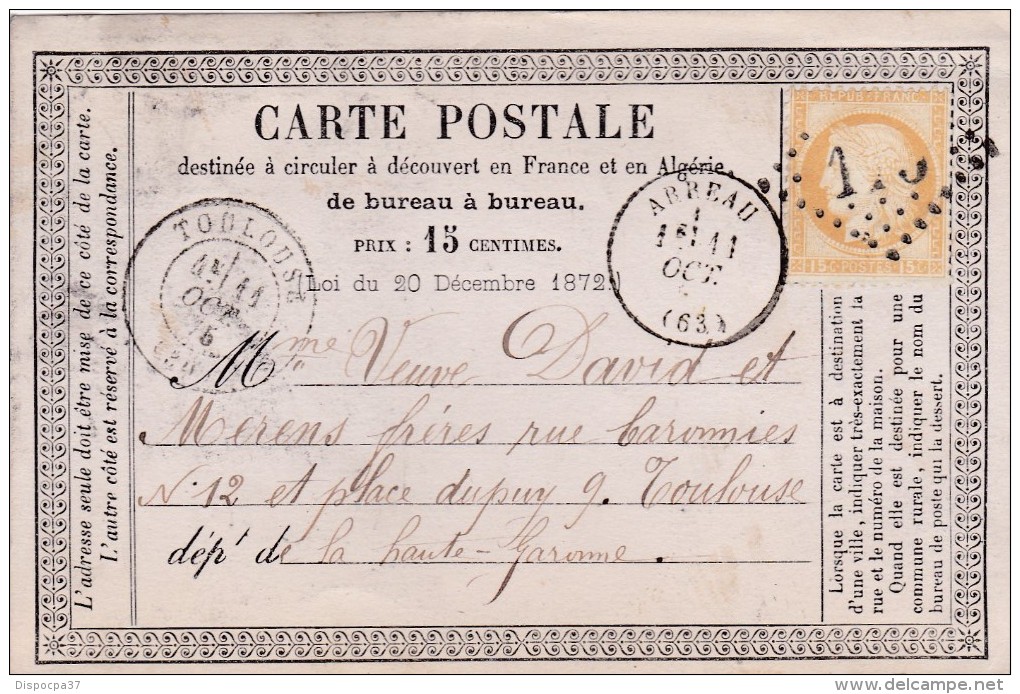 CARTE POSTALE
destinée à circuler à découvert en France et en Algérie.
de bureau à bureau.
PRIX : 15 CENTIMES.
(Loi du 20 Décembre 1872.)
L'adresse seule doit être mise de ce côté de la carte.
L'autre côté est réservé à la correspondance.
REPUB FRANC
15 C POSTES 15 C
ARREAU
11
OCT.
(63)
TOULOUSE
11
OCT
Mme Veuve David et
Merens frères rue baronnies
N. 12 et place dupuy 9. Toulouse
dépt de la haute-Garonne.
Lorsque la carte est à destination
d'une ville, indiquer très-exactement la
rue et le numéro de la maison.
Quand elle est destinée pour une
commune rurale, indiquer le nom du
bureau de poste qui la dessert.
Dispocpa37
delcampe.net